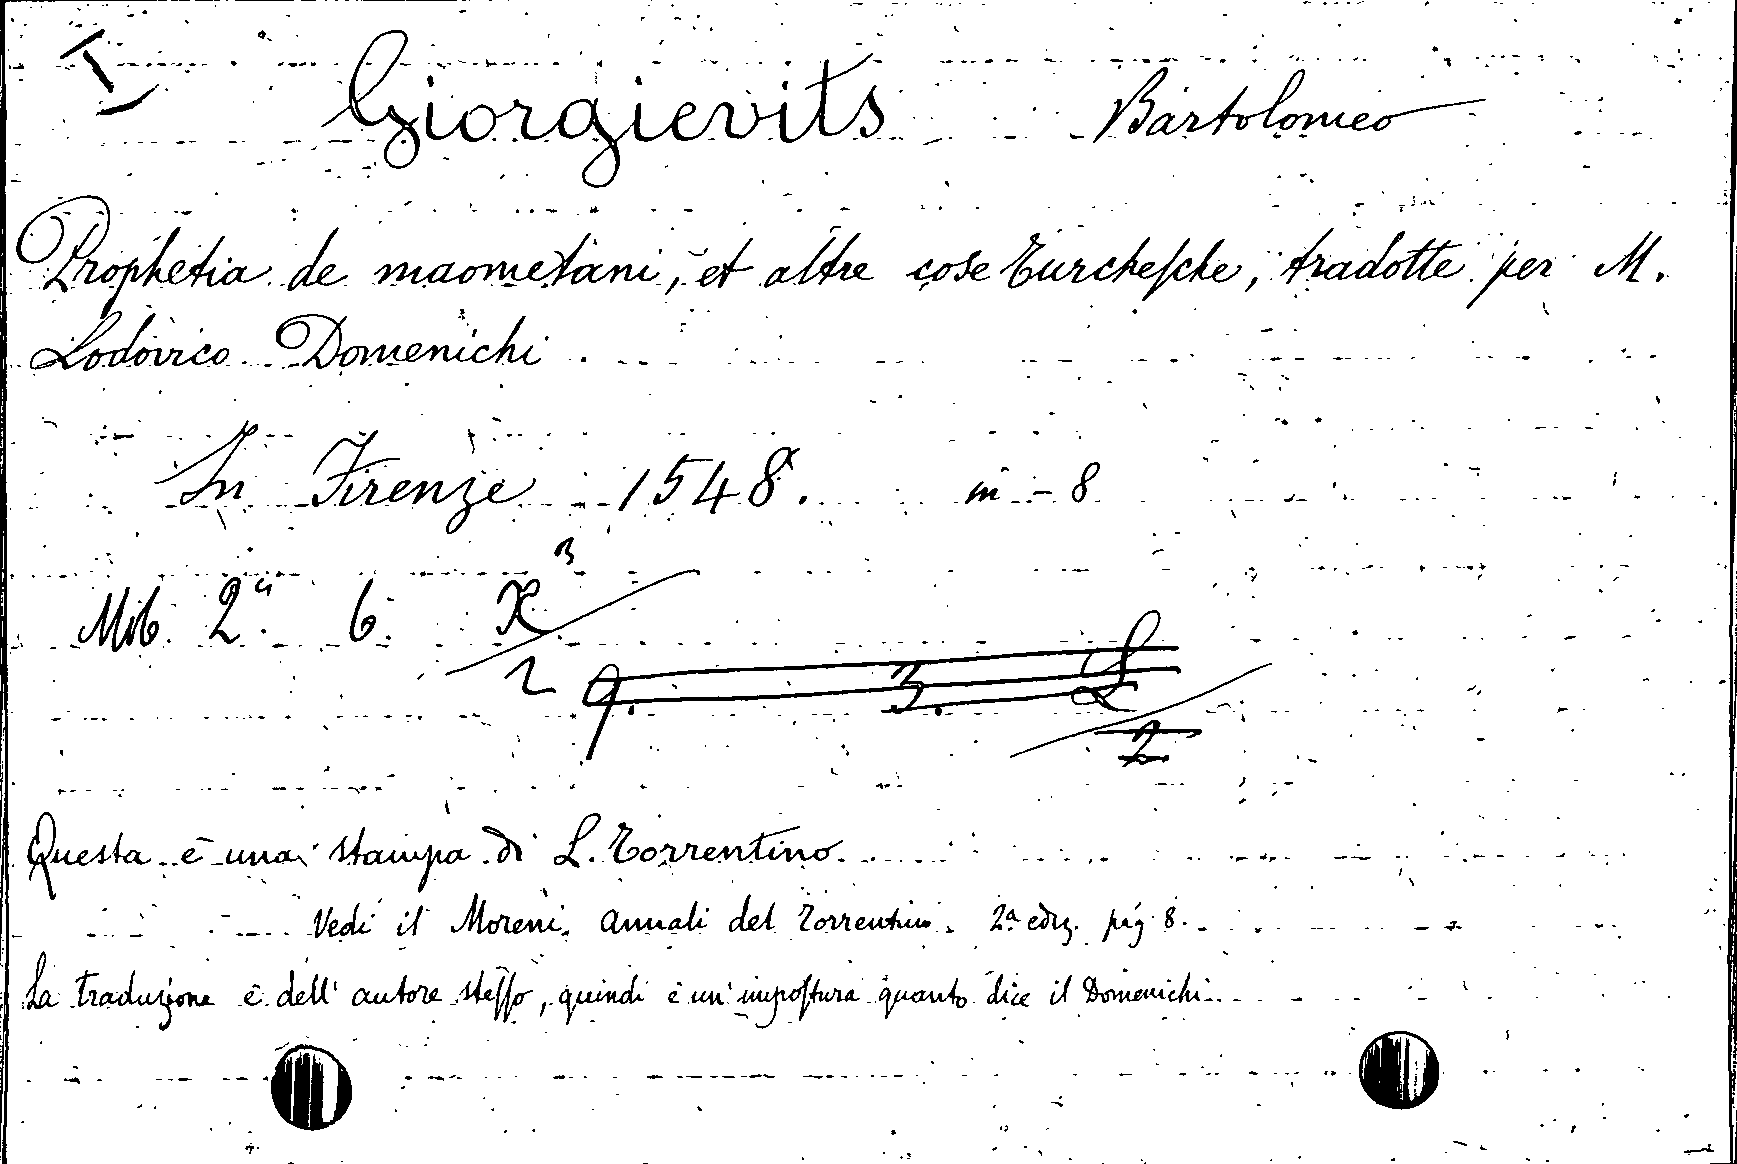 Giorgievits Bartolomeo
Prophetia de maometani, et altre cose Turcheſche, tradotte per M.
Lodovico Domenichi.
In Firenze 1548. in-8
Mib. 2ª. 6. X³/2
9. 3. L/2
Questa è una stampa di L. Torrentino.
Vedi il Moreni. Annali del Torrentino. 2ª ediz. pag 8.
La traduzione è dell' autore steſſo, quindi è un' impoſtura quanto dice il Domenichi.